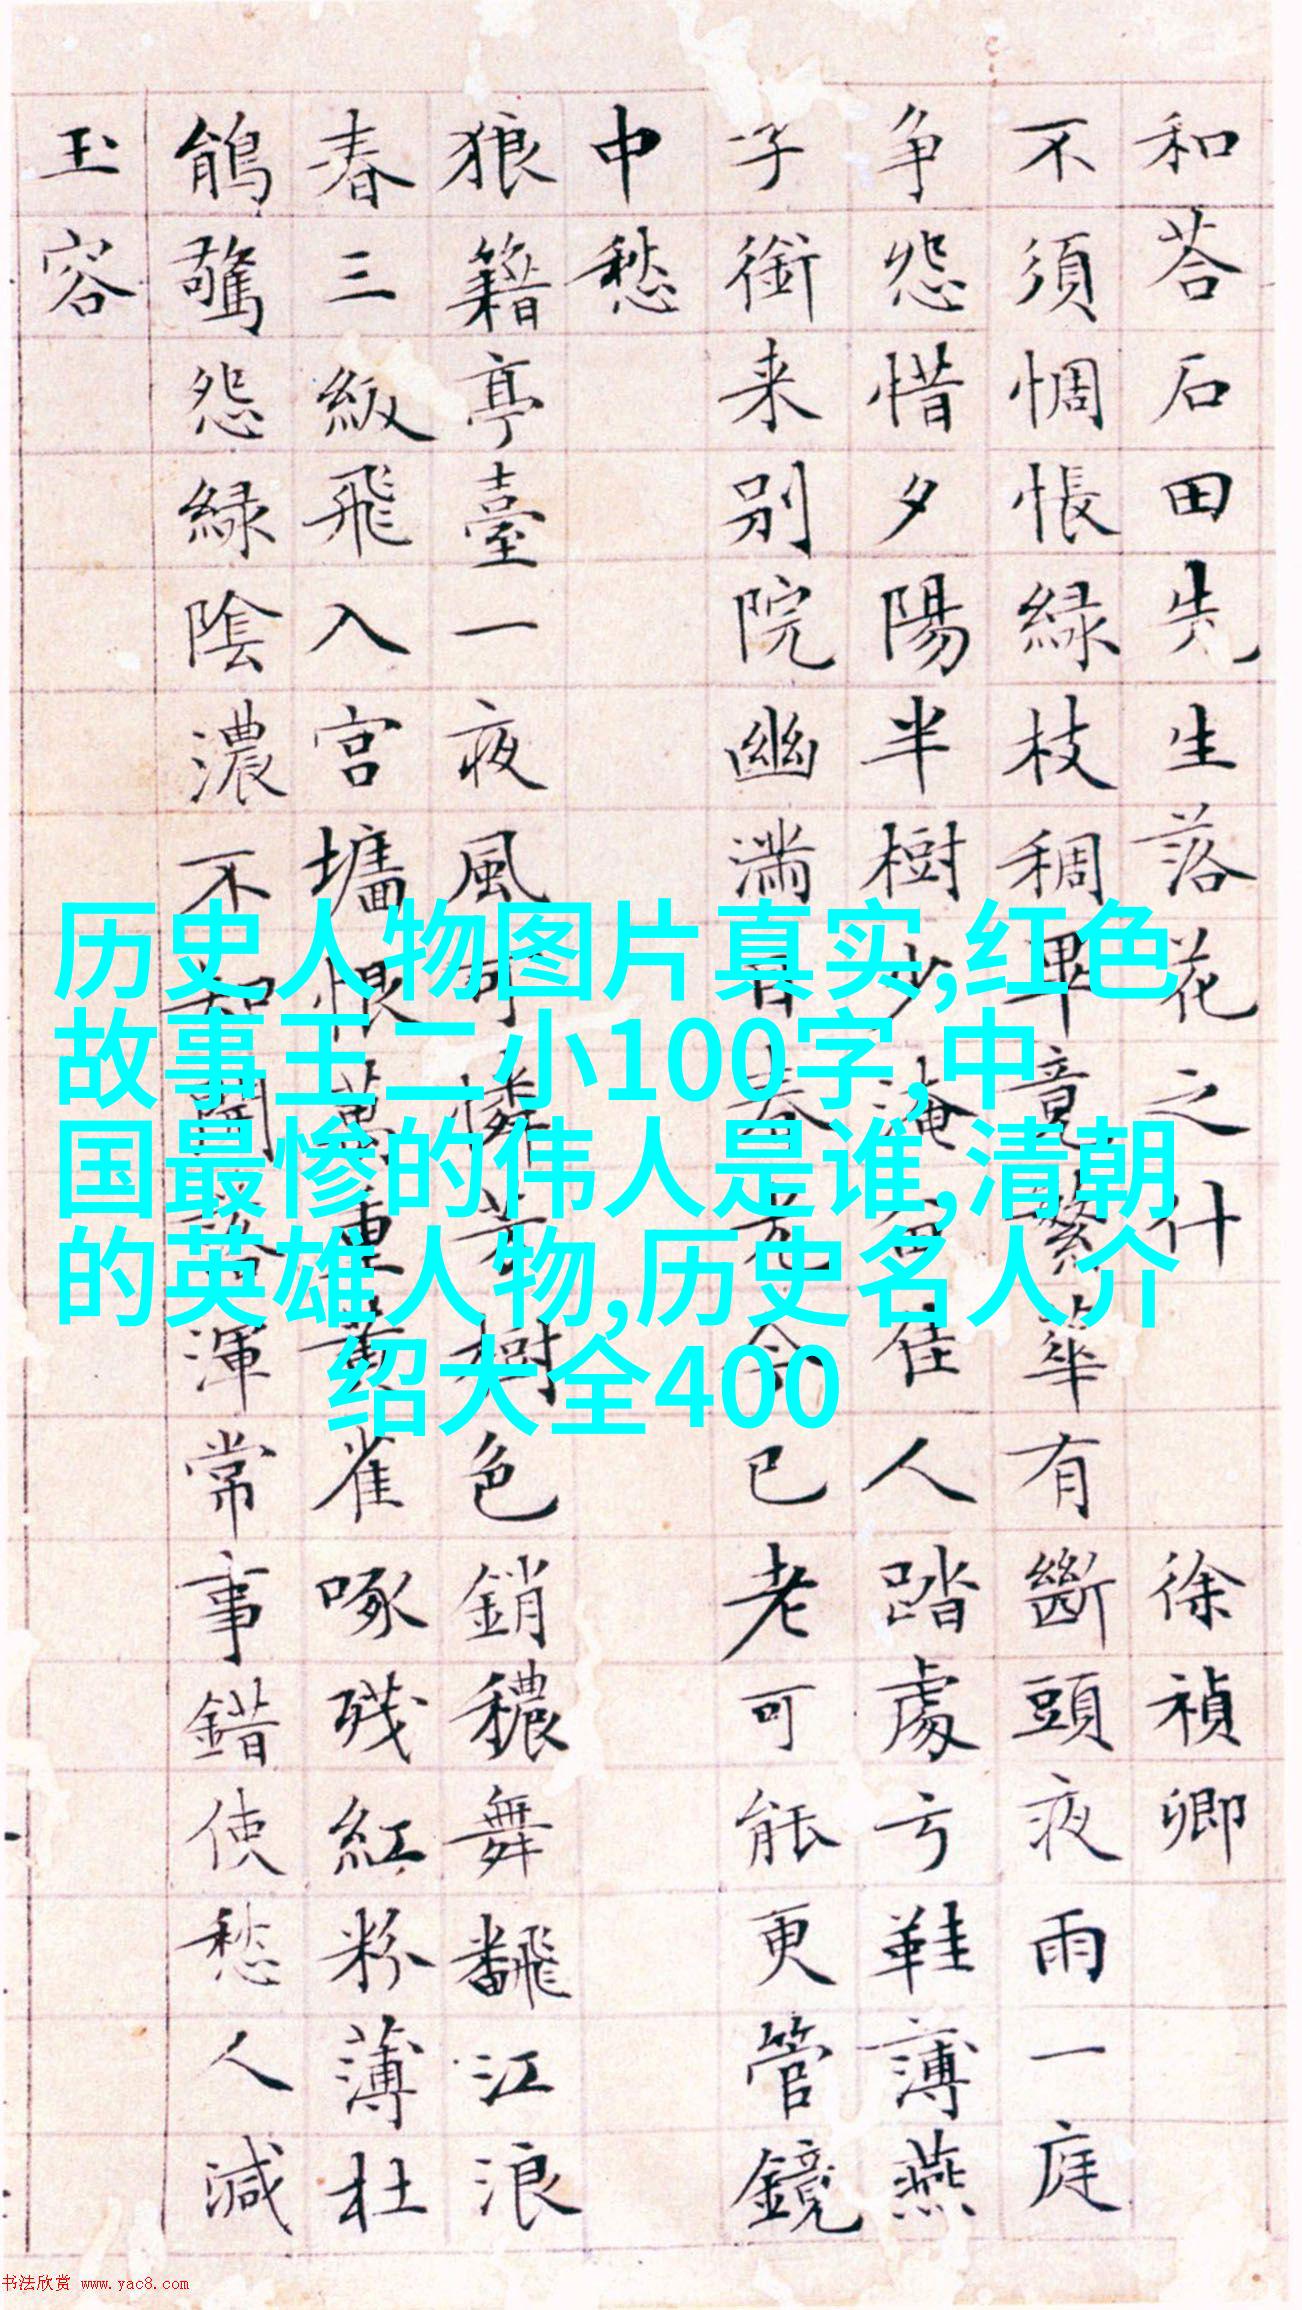 和荅石田先生落花之什 徐禎卿
不須惆悵綠枝稠畢竟繁華有斷頭夜雨一庭
争怨惜夕陽半樹少淹留佳人踏處弓鞋薄燕
子銜来别院幽滿目春光今已老可能更管鏡
中愁
狼籍亭臺一夜風可憐芳樹色銷穠舞飜江浪
春三級飛入宮墻恨萬重黃雀啄残紅粉薄杜
鵑驚怨綠陰濃不知開落渾常事錯使愁人減
玉容
历史人物图片真实,红色
故事王二小100字,中
国最惨的伟人是谁,清朝
的英雄人物,历史名人介
绍大全400
书法欣赏 www.yac8.com